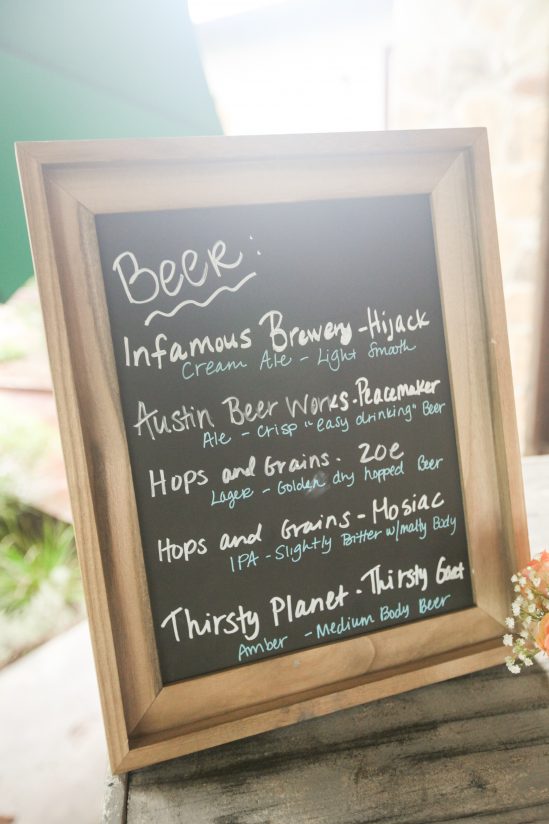 Beer:
Infamous Brewery - Hijack
Cream Ale - Light Smooth
Austin Beer Works - Peacemaker
Ale - Crisp "easy drinking" Beer
Hops and Grains - Zoe
Lager - Golden dry hopped Beer
Hops and Grains - Mosiac
IPA - Slightly Bitter w/malty Body
Thirsty Planet - Thirsty Goat
Amber - Medium Body Beer